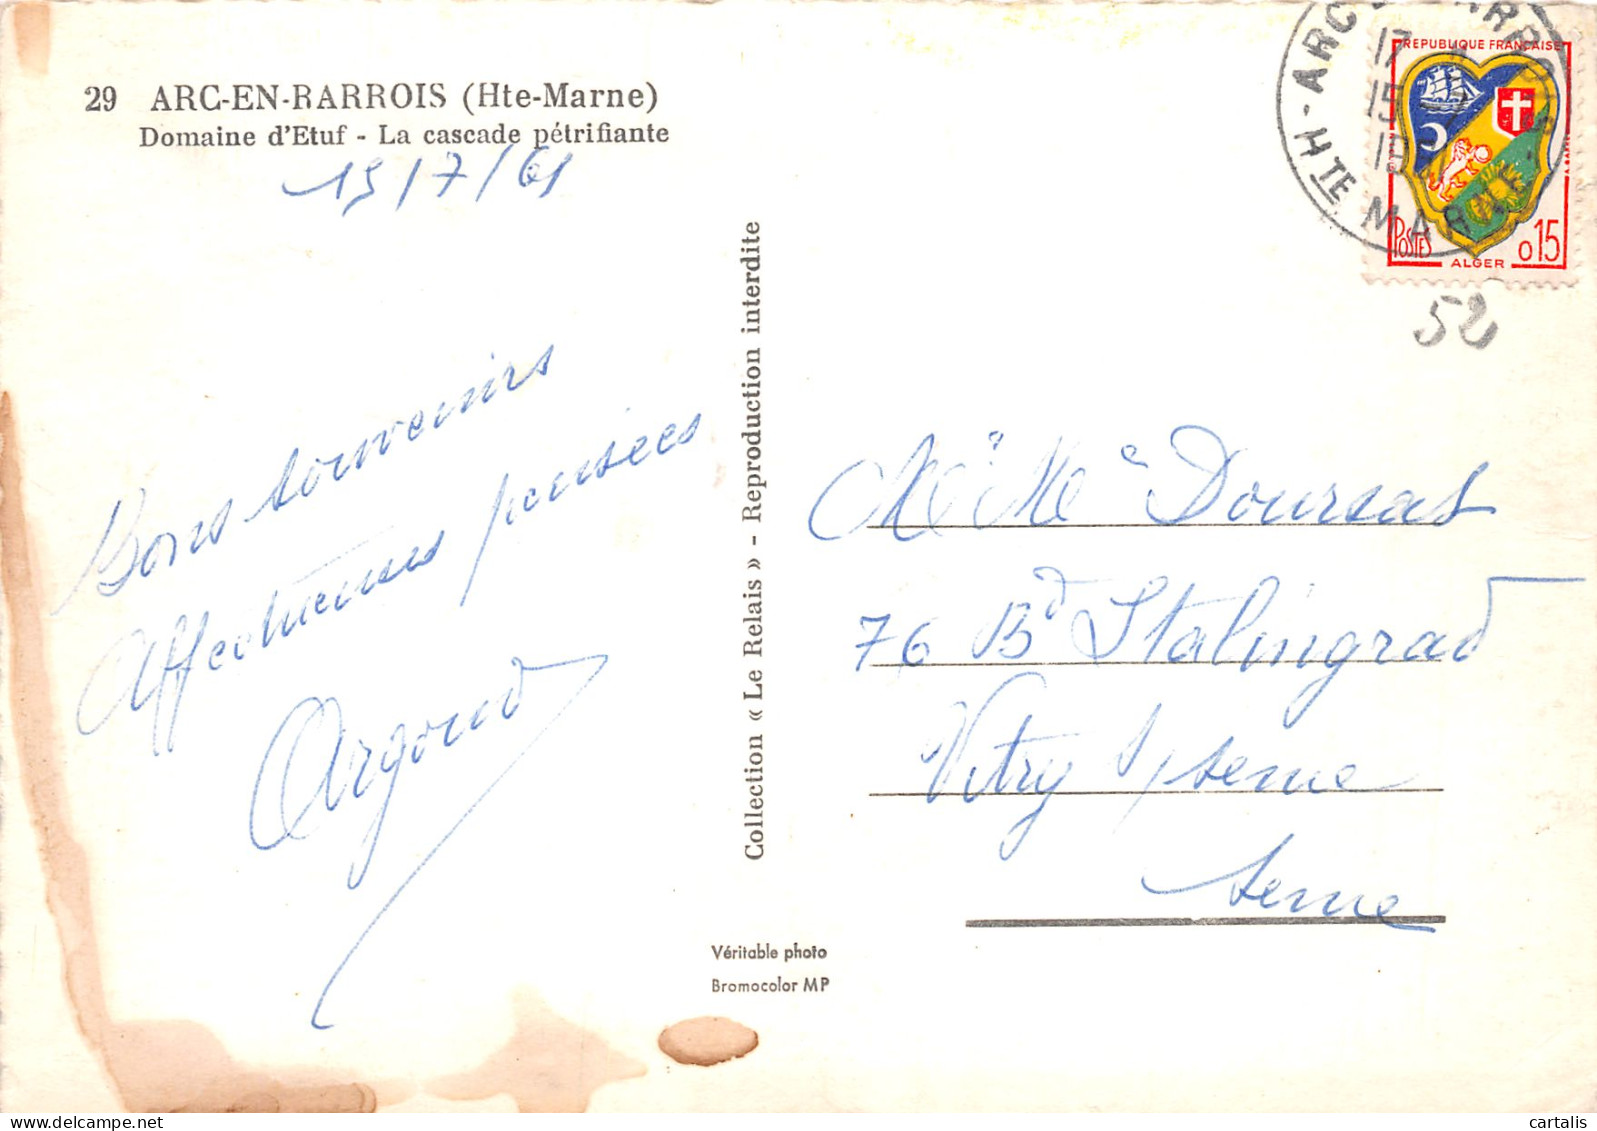 29 ARC-EN-RARROIS (Hte-Marne)
Domaine d'Etuf - La cascade pétrifiante
15/7/61
Bons souvenirs
Affectueuses pensées
Argoud
Collection « Le Relais » - Reproduction interdite
Véritable photo
Bromocolor MP
REPUBLIQUE FRANÇAISE
POSTES
ALGER
0,15
HTE MARNE
17
15-7
52
Me Me Doursat
76 Bd Stalingrad
Vitry s/seine
Seine
cartalis